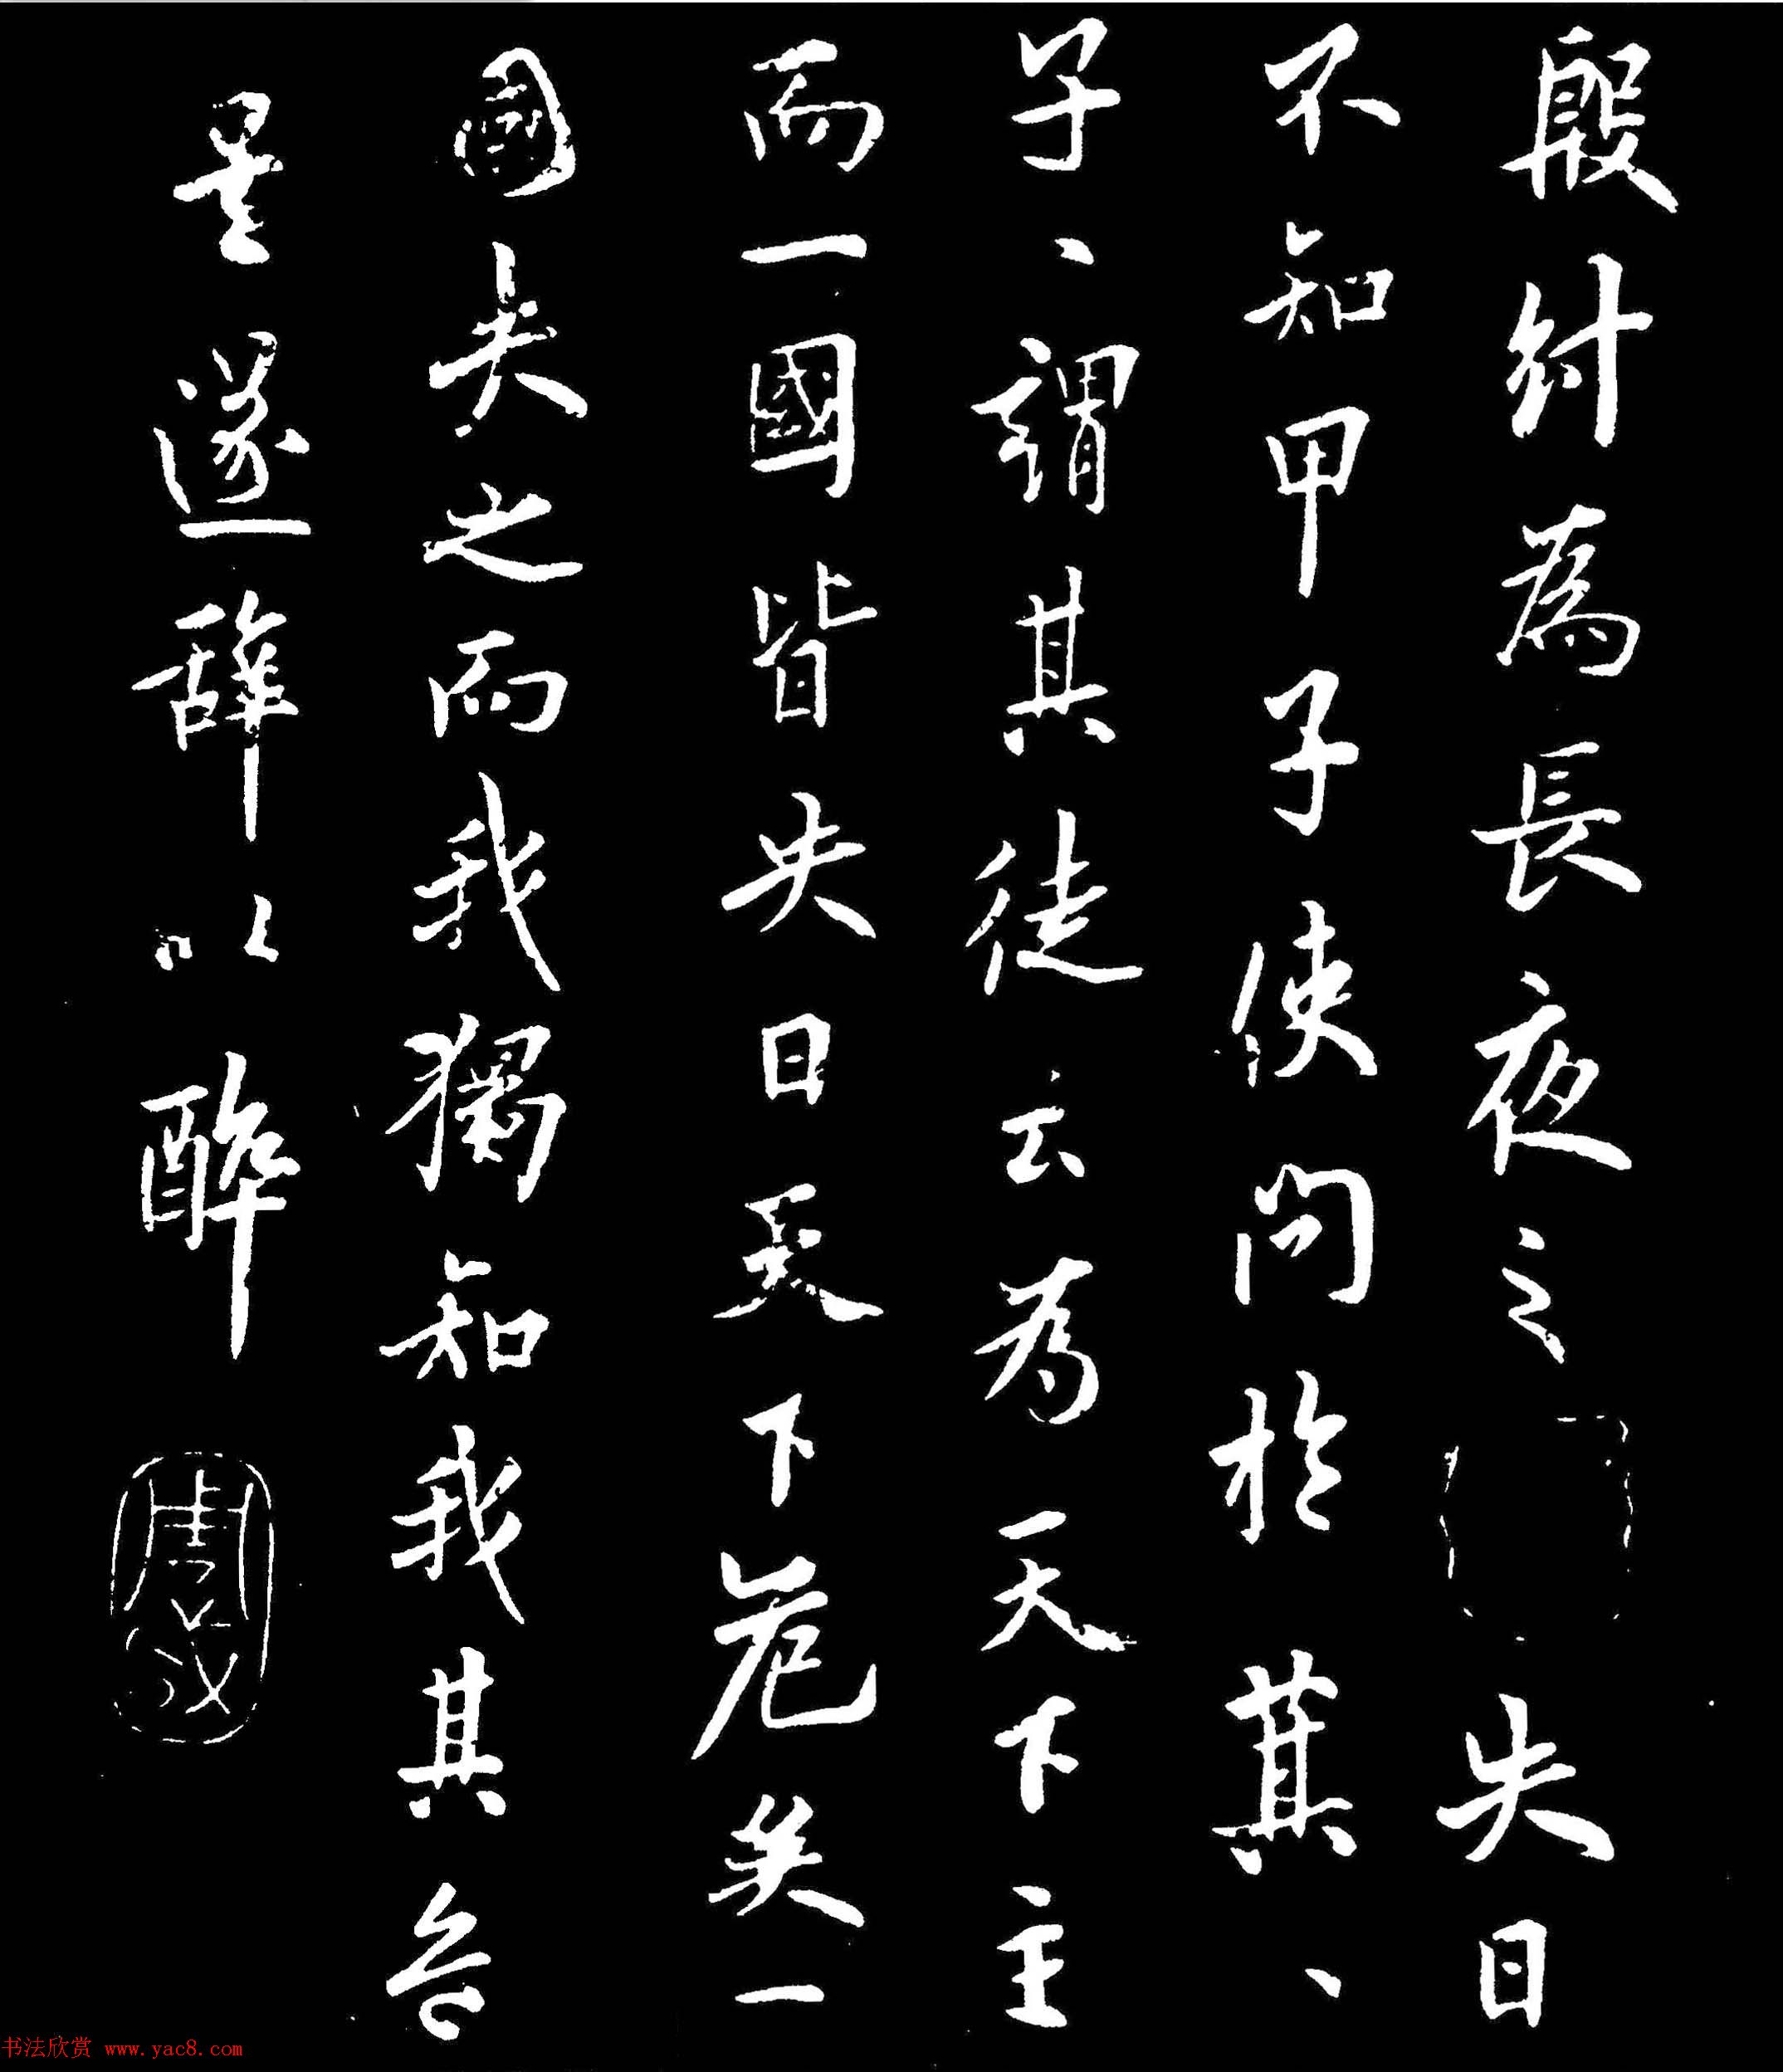 殷紂為長夜之失日
不知甲子使问於萁、
子、謂其徒云為天下主
而一國皆失日天下危矣一
國失之而我獨知我其危
矣遂辭以醉
书法欣赏 www.yac8.com